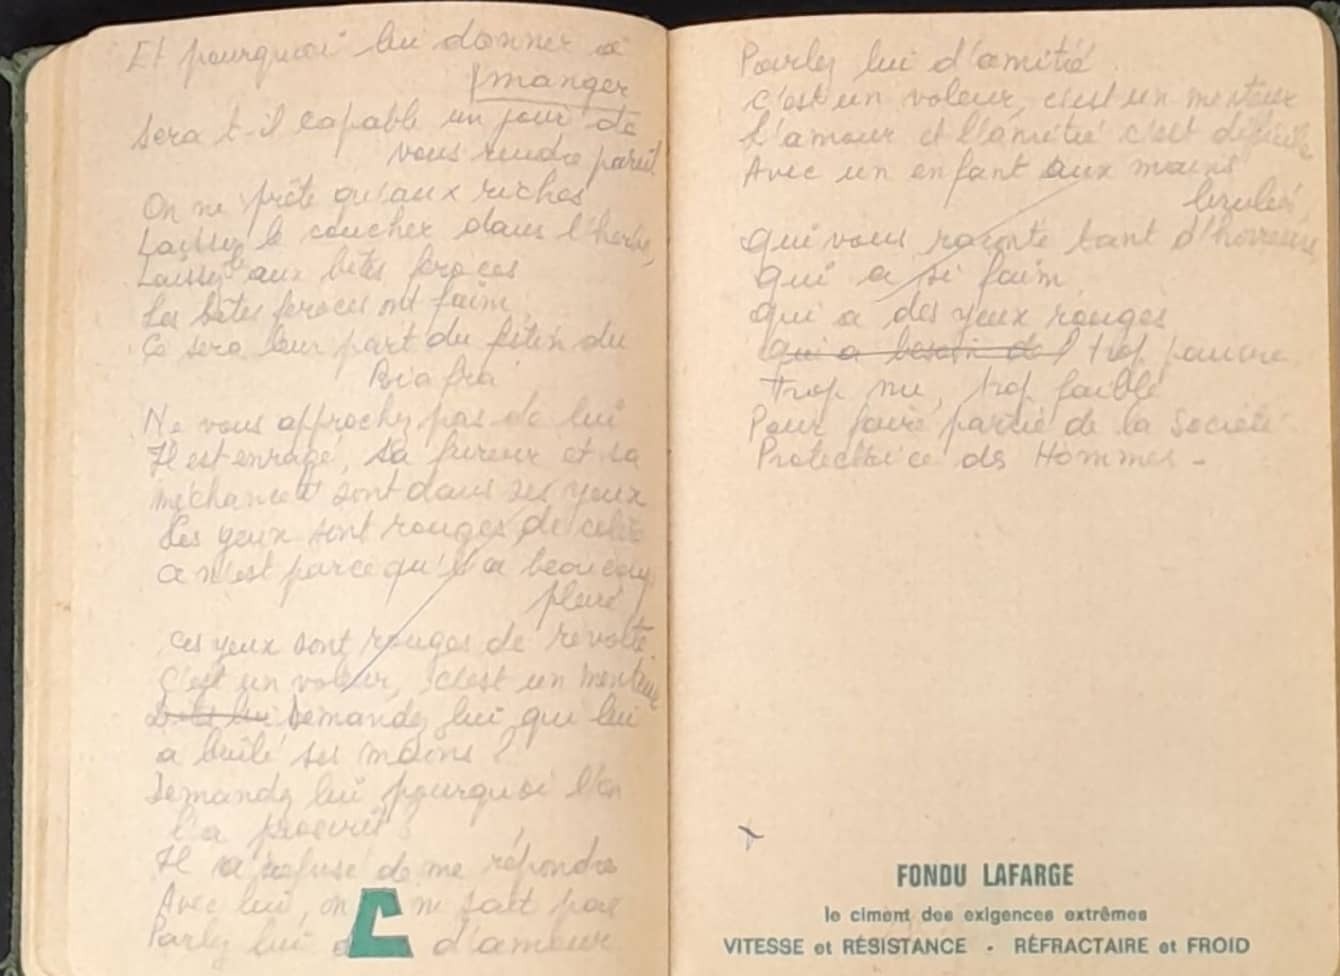 Et pourquoi lui donner à
manger
Sera t-il capable un jour de
vous rendre pareil
On ne prête qu'aux riches
Laissez le coucher dans l'herbe,
Laissez le aux bêtes feroces
Les bêtes feroces ont faim
Ce sera leur part du festin du
Biafra
Ne vous approchez pas de lui
Il est enragé, sa fureur et sa
méchanceté sont dans ses yeux
Ses yeux sont rouges de colère
a n'est parce qu'il a beaucoup
pleuré
Ces yeux sont rouges de révolte
C'est un voleur, c'est un menteur
Demandez lui qui lui
a brûlé ses mains ?
Demandez lui pourquoi l'on
l'a proscrit ?
Il a refusé de me répondre
Avec lui, on ne sait pas
Parlez lui d'amour
Parlez lui d'amitié
C'est un voleur, c'est un menteur
L'amour et l'amitié c'est difficile
Avec un enfant aux mains
brulées,
qui vous raconte tant d'horreurs
qui a si faim
qui a des yeux rouges
qui a besoin d trop pauvre
trop nu, trop faible
Pour faire partie de la Société
Protectrice des Hommes -
FONDU LAFARGE
le ciment des exigences extrêmes
VITESSE et RÉSISTANCE - RÉFRACTAIRE et FROID